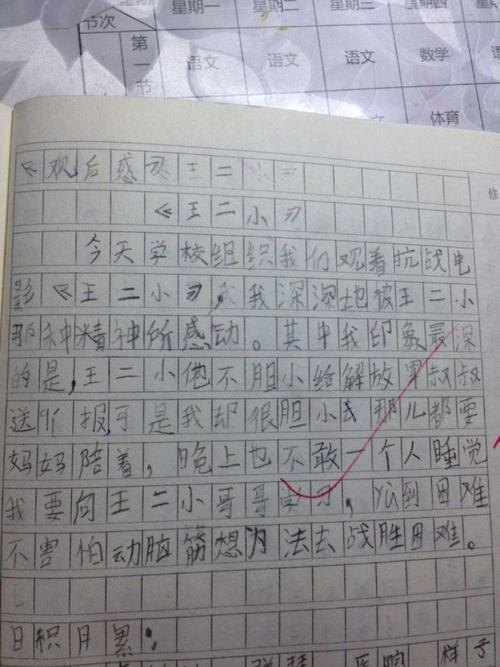 星期一 星期二 星期三 星期四
节次
第一节 语文 语文 语文 数学 语
体育
《观后感》王二小》
《王二小》
今天学校组织我们观看抗战电
影《王二小》,我深深地被王二小
那种精神所感动。其中我印象最深
的是,王二小他不胆小给解放军叔叔
送情报,可是我却很胆小去那儿都要
妈妈陪着,晚上也不敢一个人睡觉
我要向王二小哥哥学习,遇到困难
不害怕动脑筋想办法去战胜困难。
日积月累:
样子